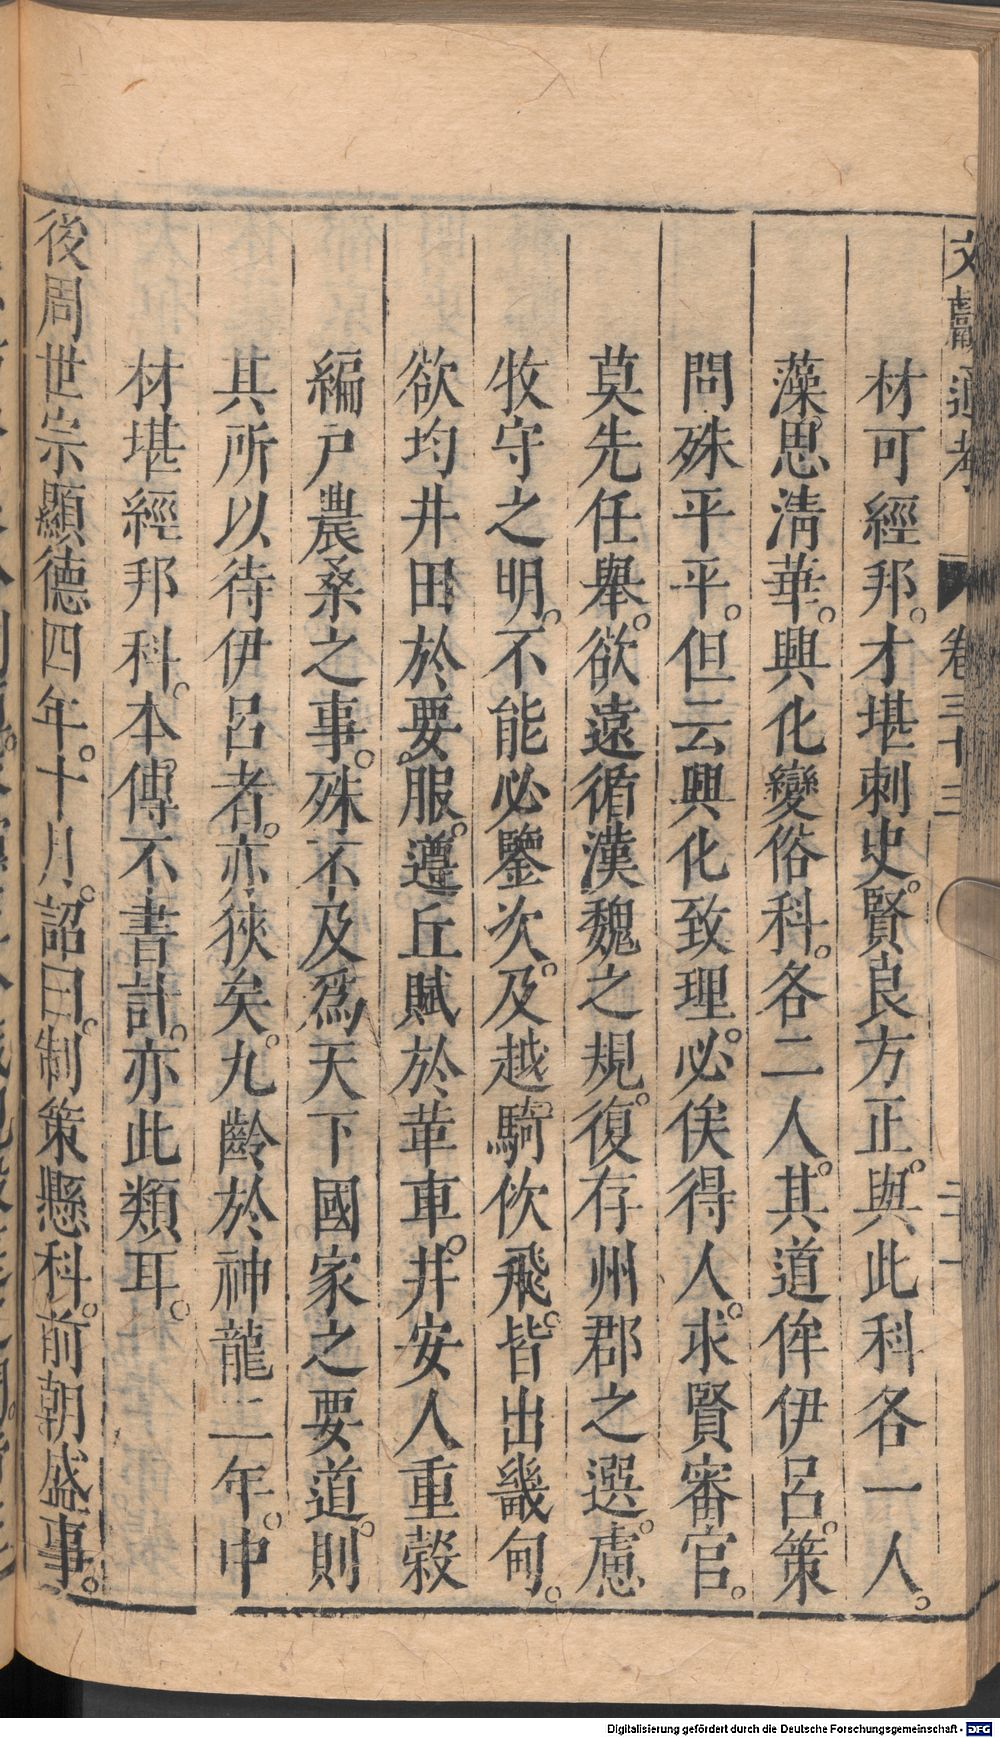 文獻通考 卷三十三
材可經邦。才堪刺史。賢良方正。與此科各一人。
藻思淸華。興化變俗科。各二人。其道侔伊呂。策
問殊平平。但云興化致理。必俟得人。求賢審官。
莫先任舉。欲遠循漢魏之規。復存州郡之選。慮
牧守之明。不能必鑒次。及越騎佽飛。皆出畿甸。
欲均井田於要服。遵丘賦於革車。并安人重榖
編戸農桑之事。殊不及爲天下國家之要道。則
其所以待伊呂者。亦狹矣。九齡於神龍二年。中
材堪經邦科。本傳不書計。亦此類耳。
後周世宗顯德四年。十月。詔曰。制策懸科。前朝盛事。
Digitalisierung gefördert durch die Deutsche Forschungsgemeinschaft - DFG